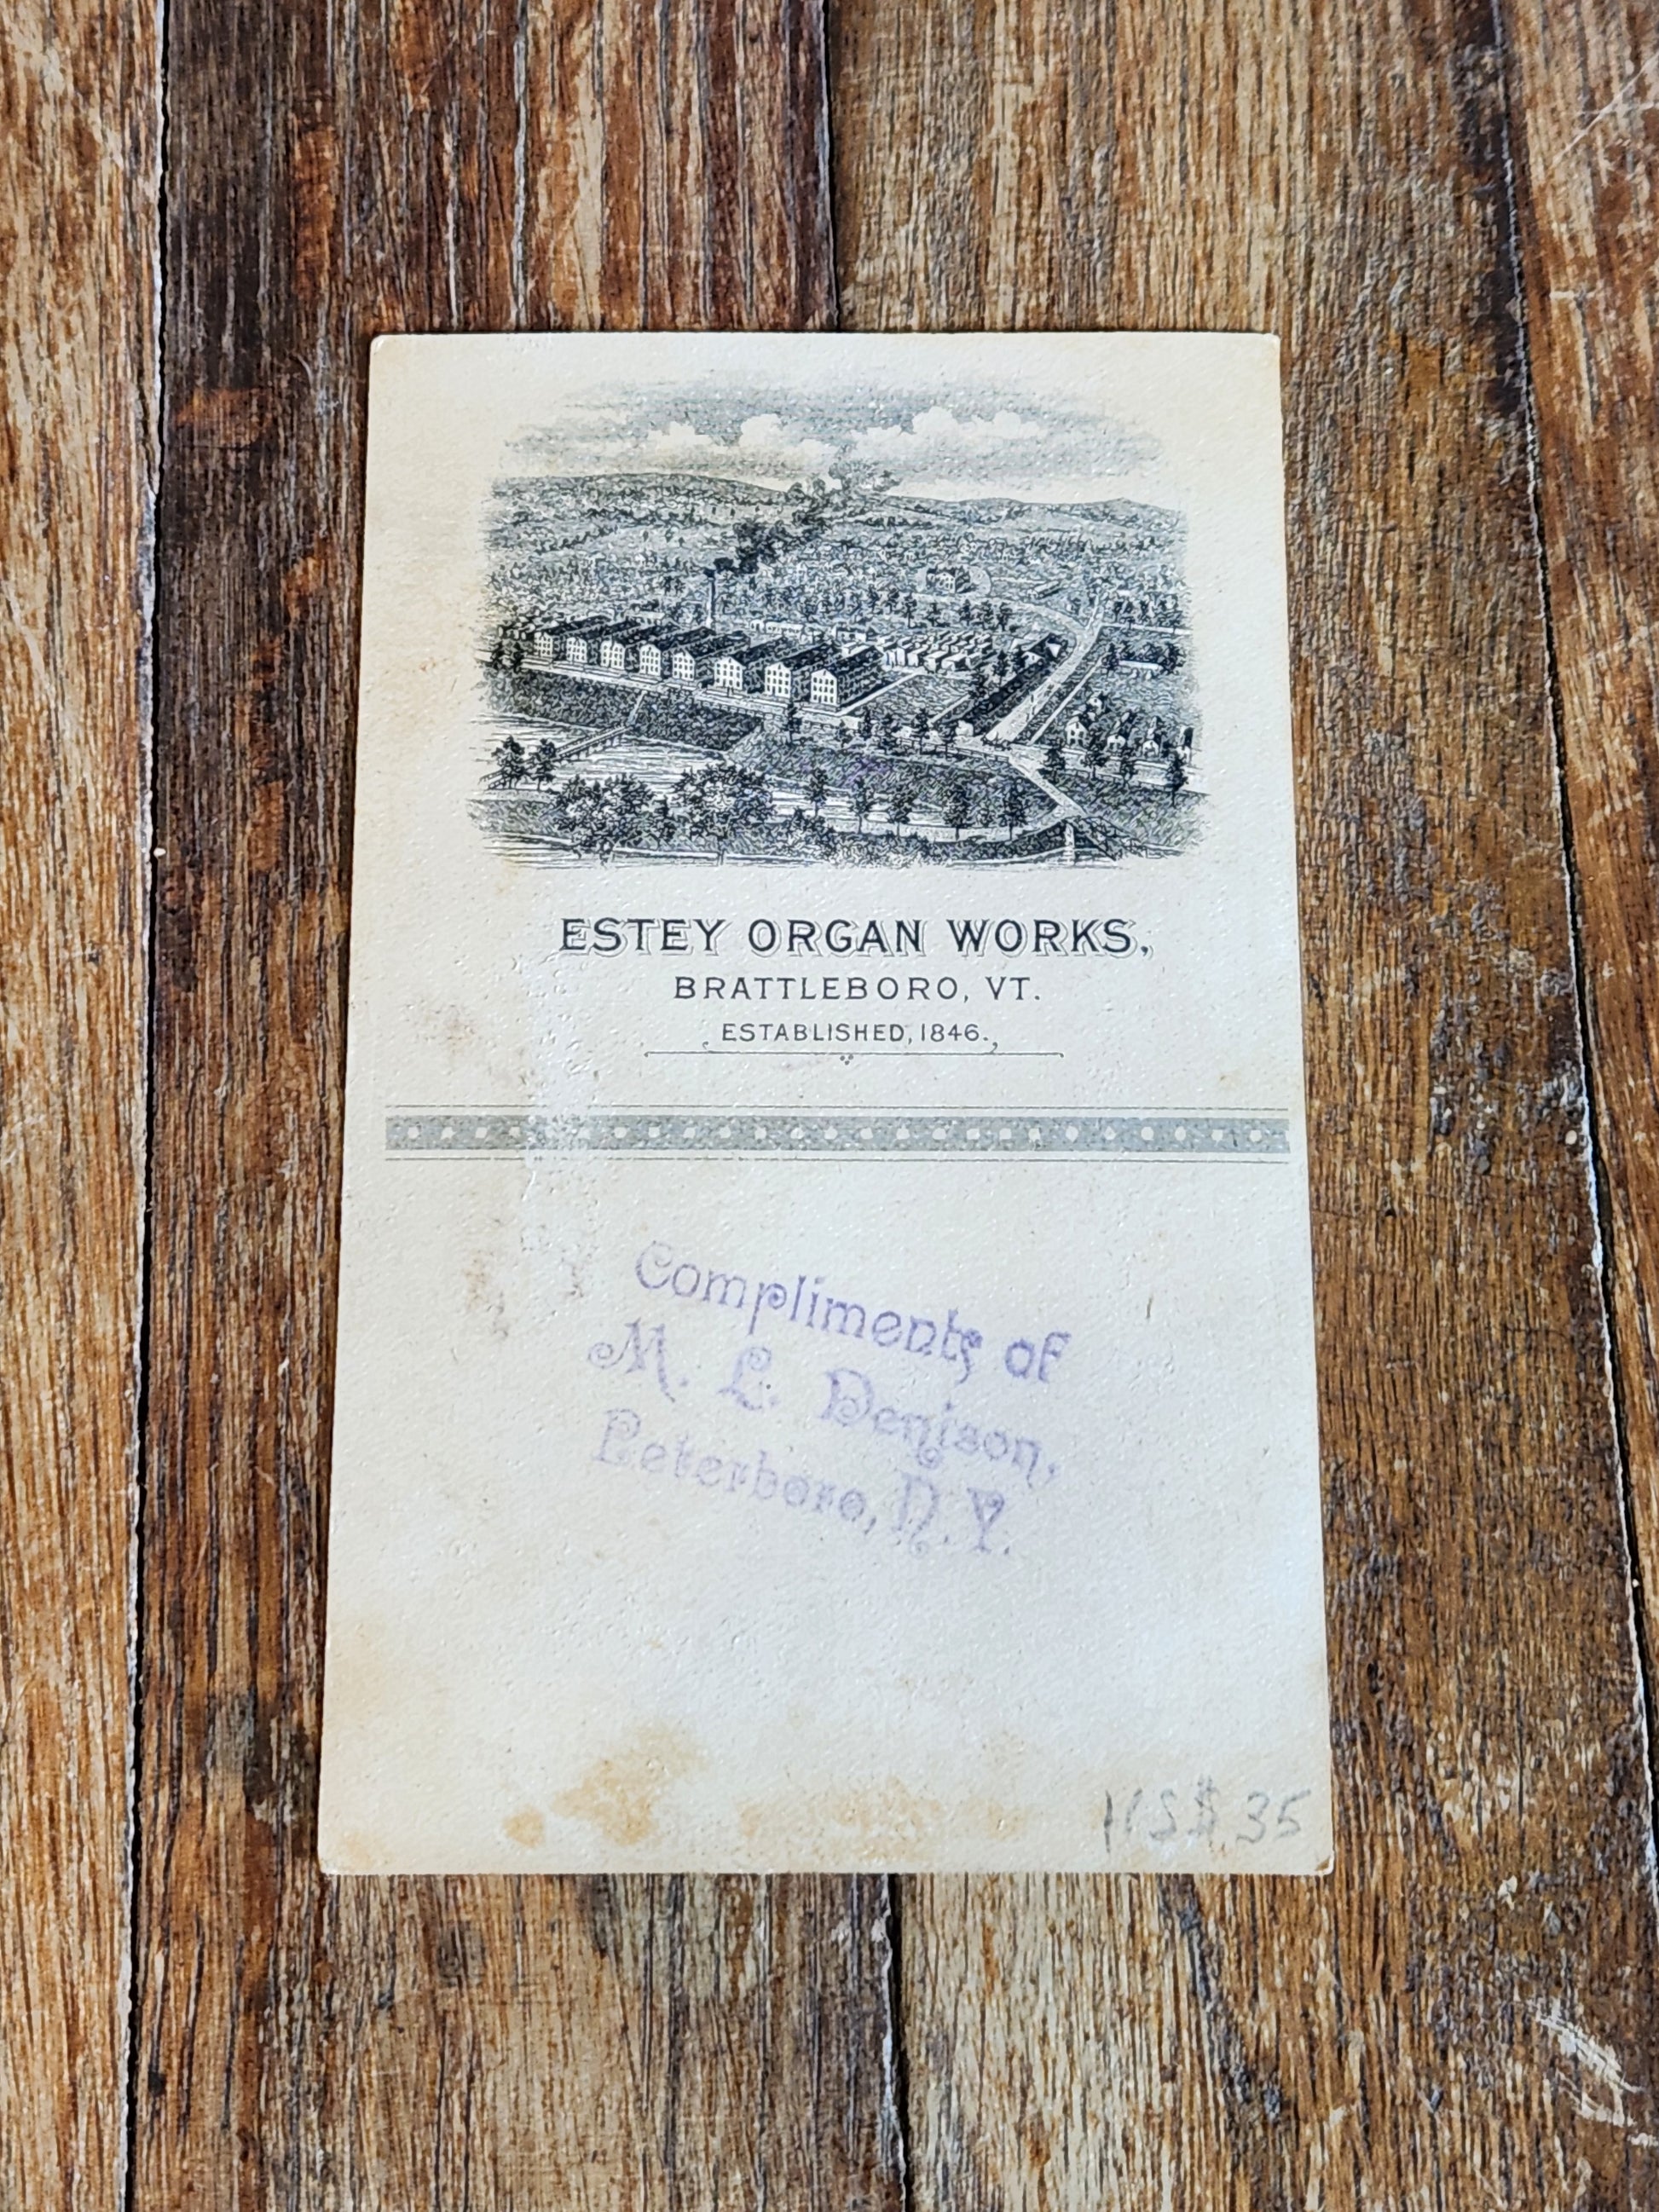 ESTEY ORGAN WORKS,
BRATTLEBORO, VT.
ESTABLISHED, 1846.
Compliments of
M. L. Denison,
Peterboro, N.Y.
35